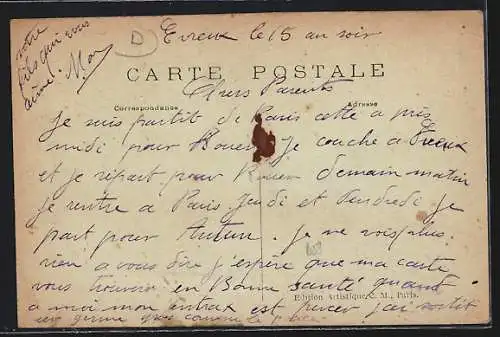 Evreux le 15 au soir
CARTE POSTALE
Chers Parents
Correspondance
Adresse
Je suis partit de Paris cette a près
midi pour Rouen je couche a Evreux
et je répart pour Rouen demain matin
je rentre a Paris Jeudi et Vendredi je
part pour Autun. je ne vois plus
rien a vous dire j'espère que ma carte
vous trouvera en Bonne santé quand
Edition Artistique, C. M., Paris.
a moi mon antrax est percer j'ai sortit
un germe gros comme le
votre
fils qui vous
aime.
D